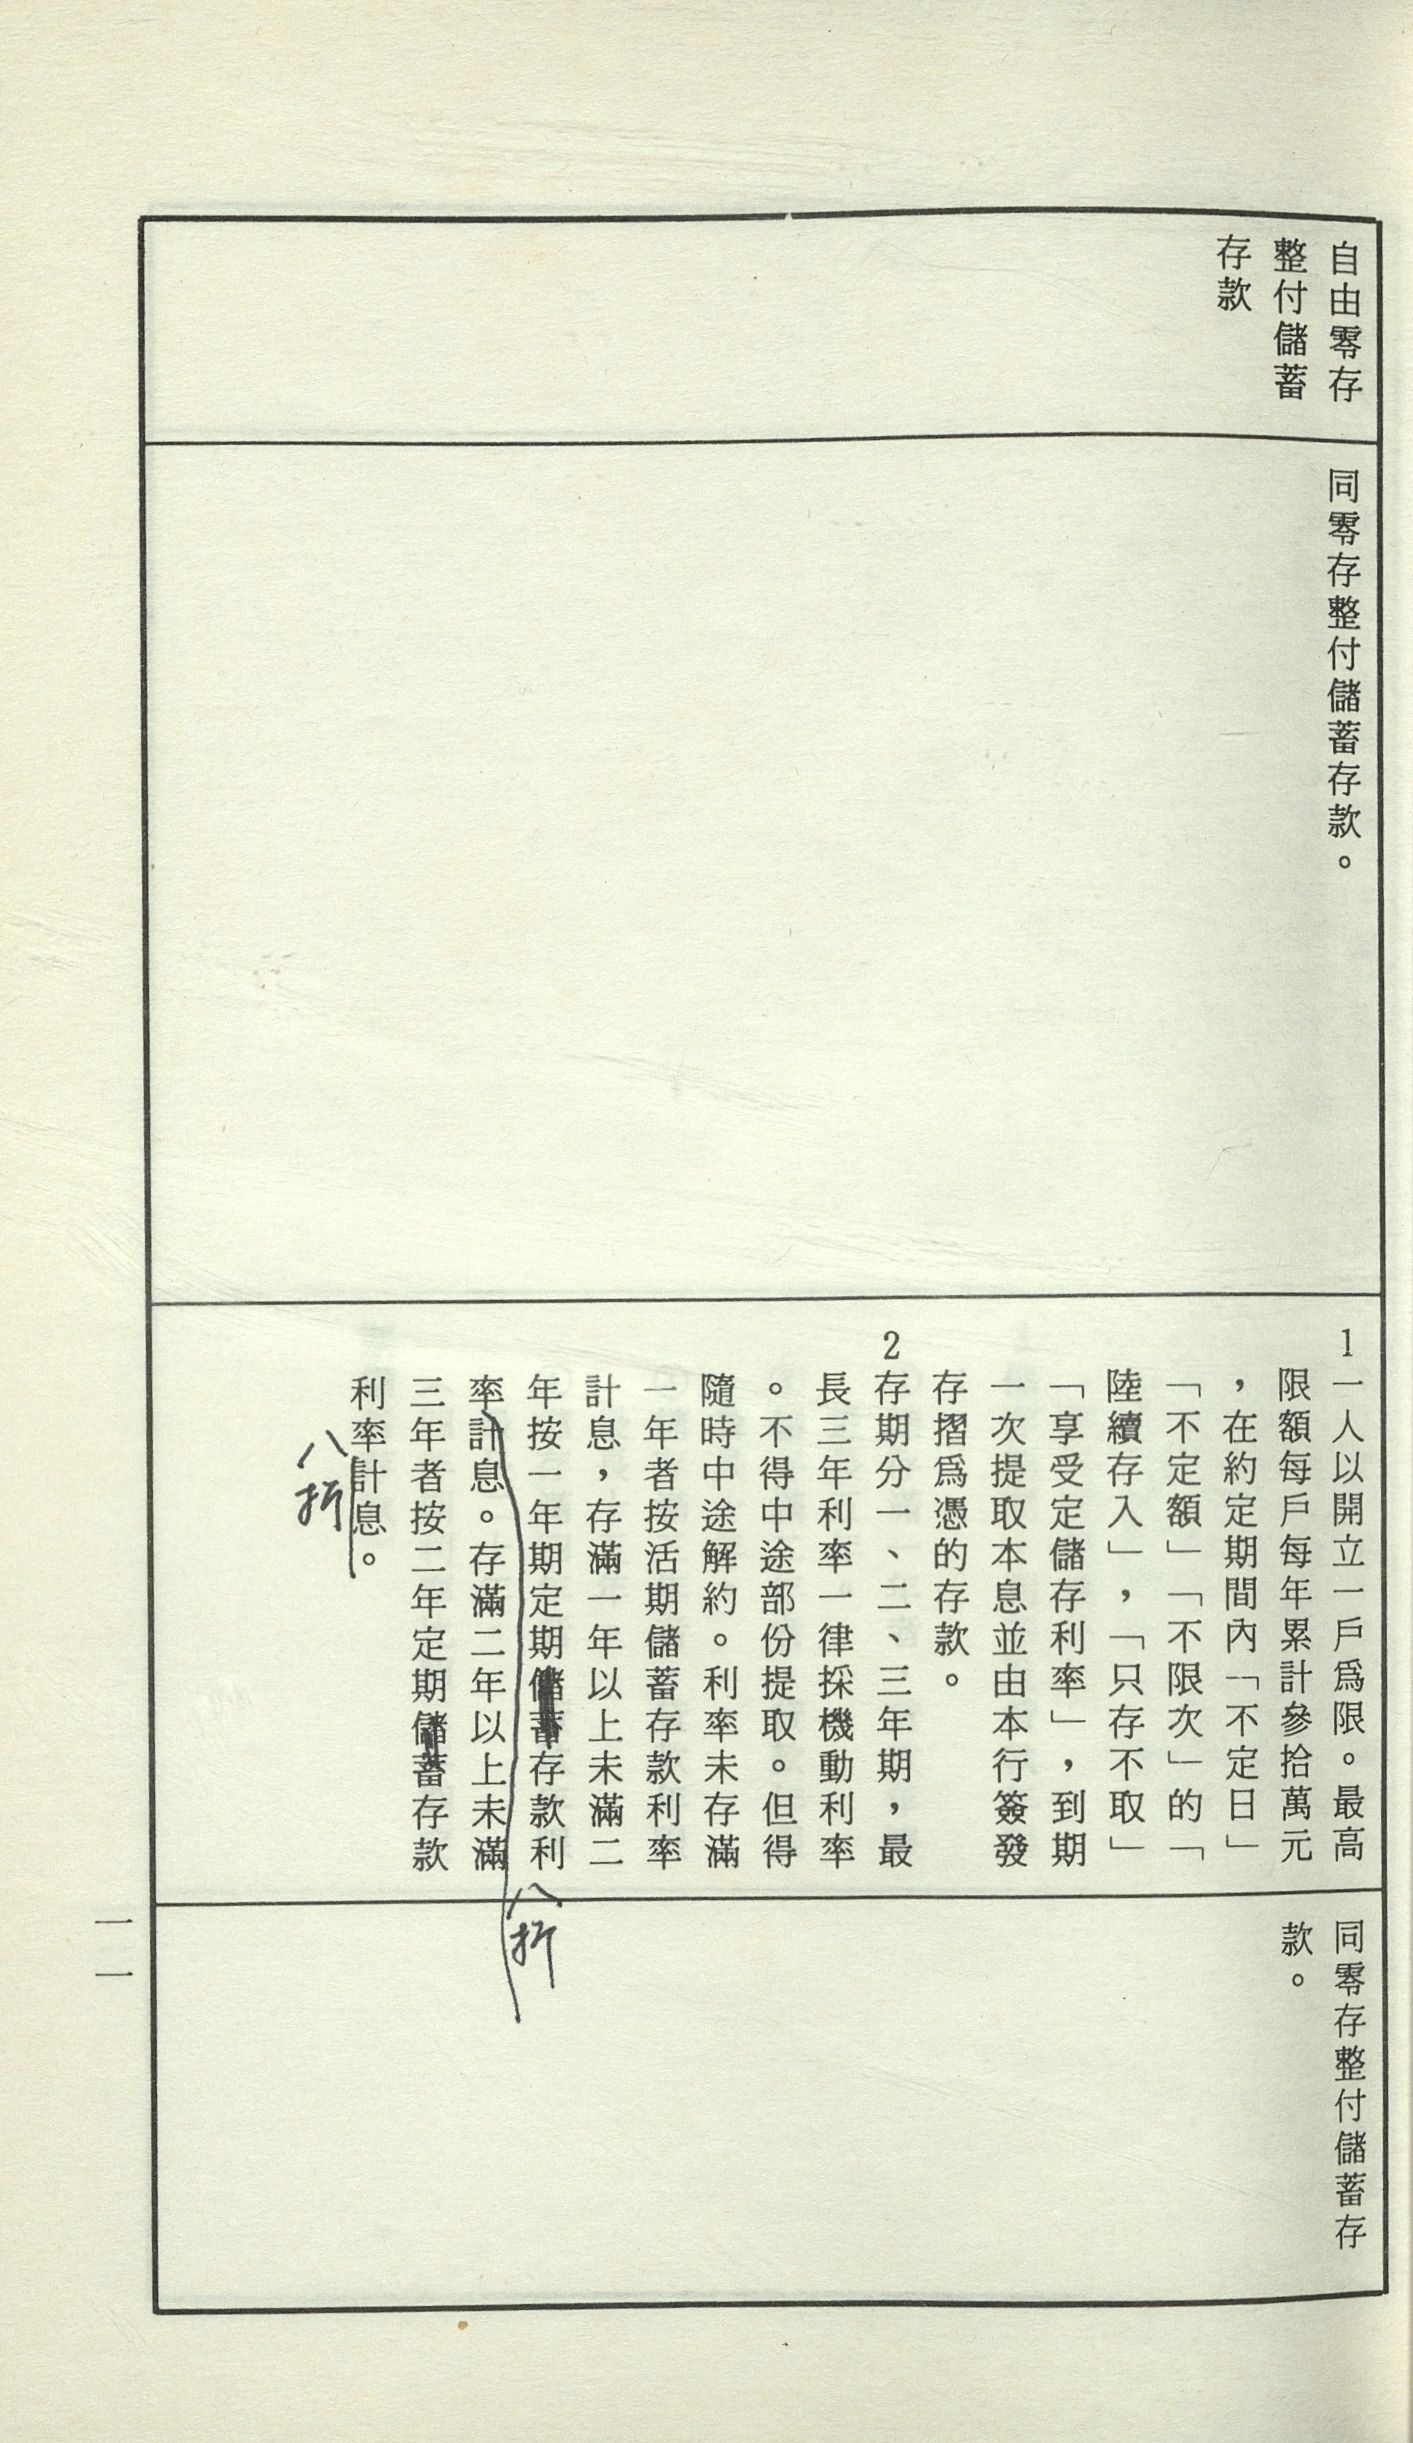 自由零存
整付儲蓄
存款
同零存整付儲蓄存款。
1一人以開立一戶爲限。最高
限額每戶每年累計參拾萬元
，在約定期間內「不定日」
「不定額」「不限次」的「
陸續存入」，「只存不取」
「享受定儲存利率」，到期
一次提取本息並由本行簽發
存摺爲憑的存款。
2存期分一、二、三年期，最
長三年利率一律採機動利率
。不得中途部份提取。但得
隨時中途解約。利率未存滿
一年者按活期儲蓄存款利率
計息，存滿一年以上未滿二
年按一年期定期儲蓄存款利
八折
率計息。存滿二年以上未滿
三年者按二年定期儲蓄存款
利率計息。
八折
同零存整付儲蓄存
款。
一一